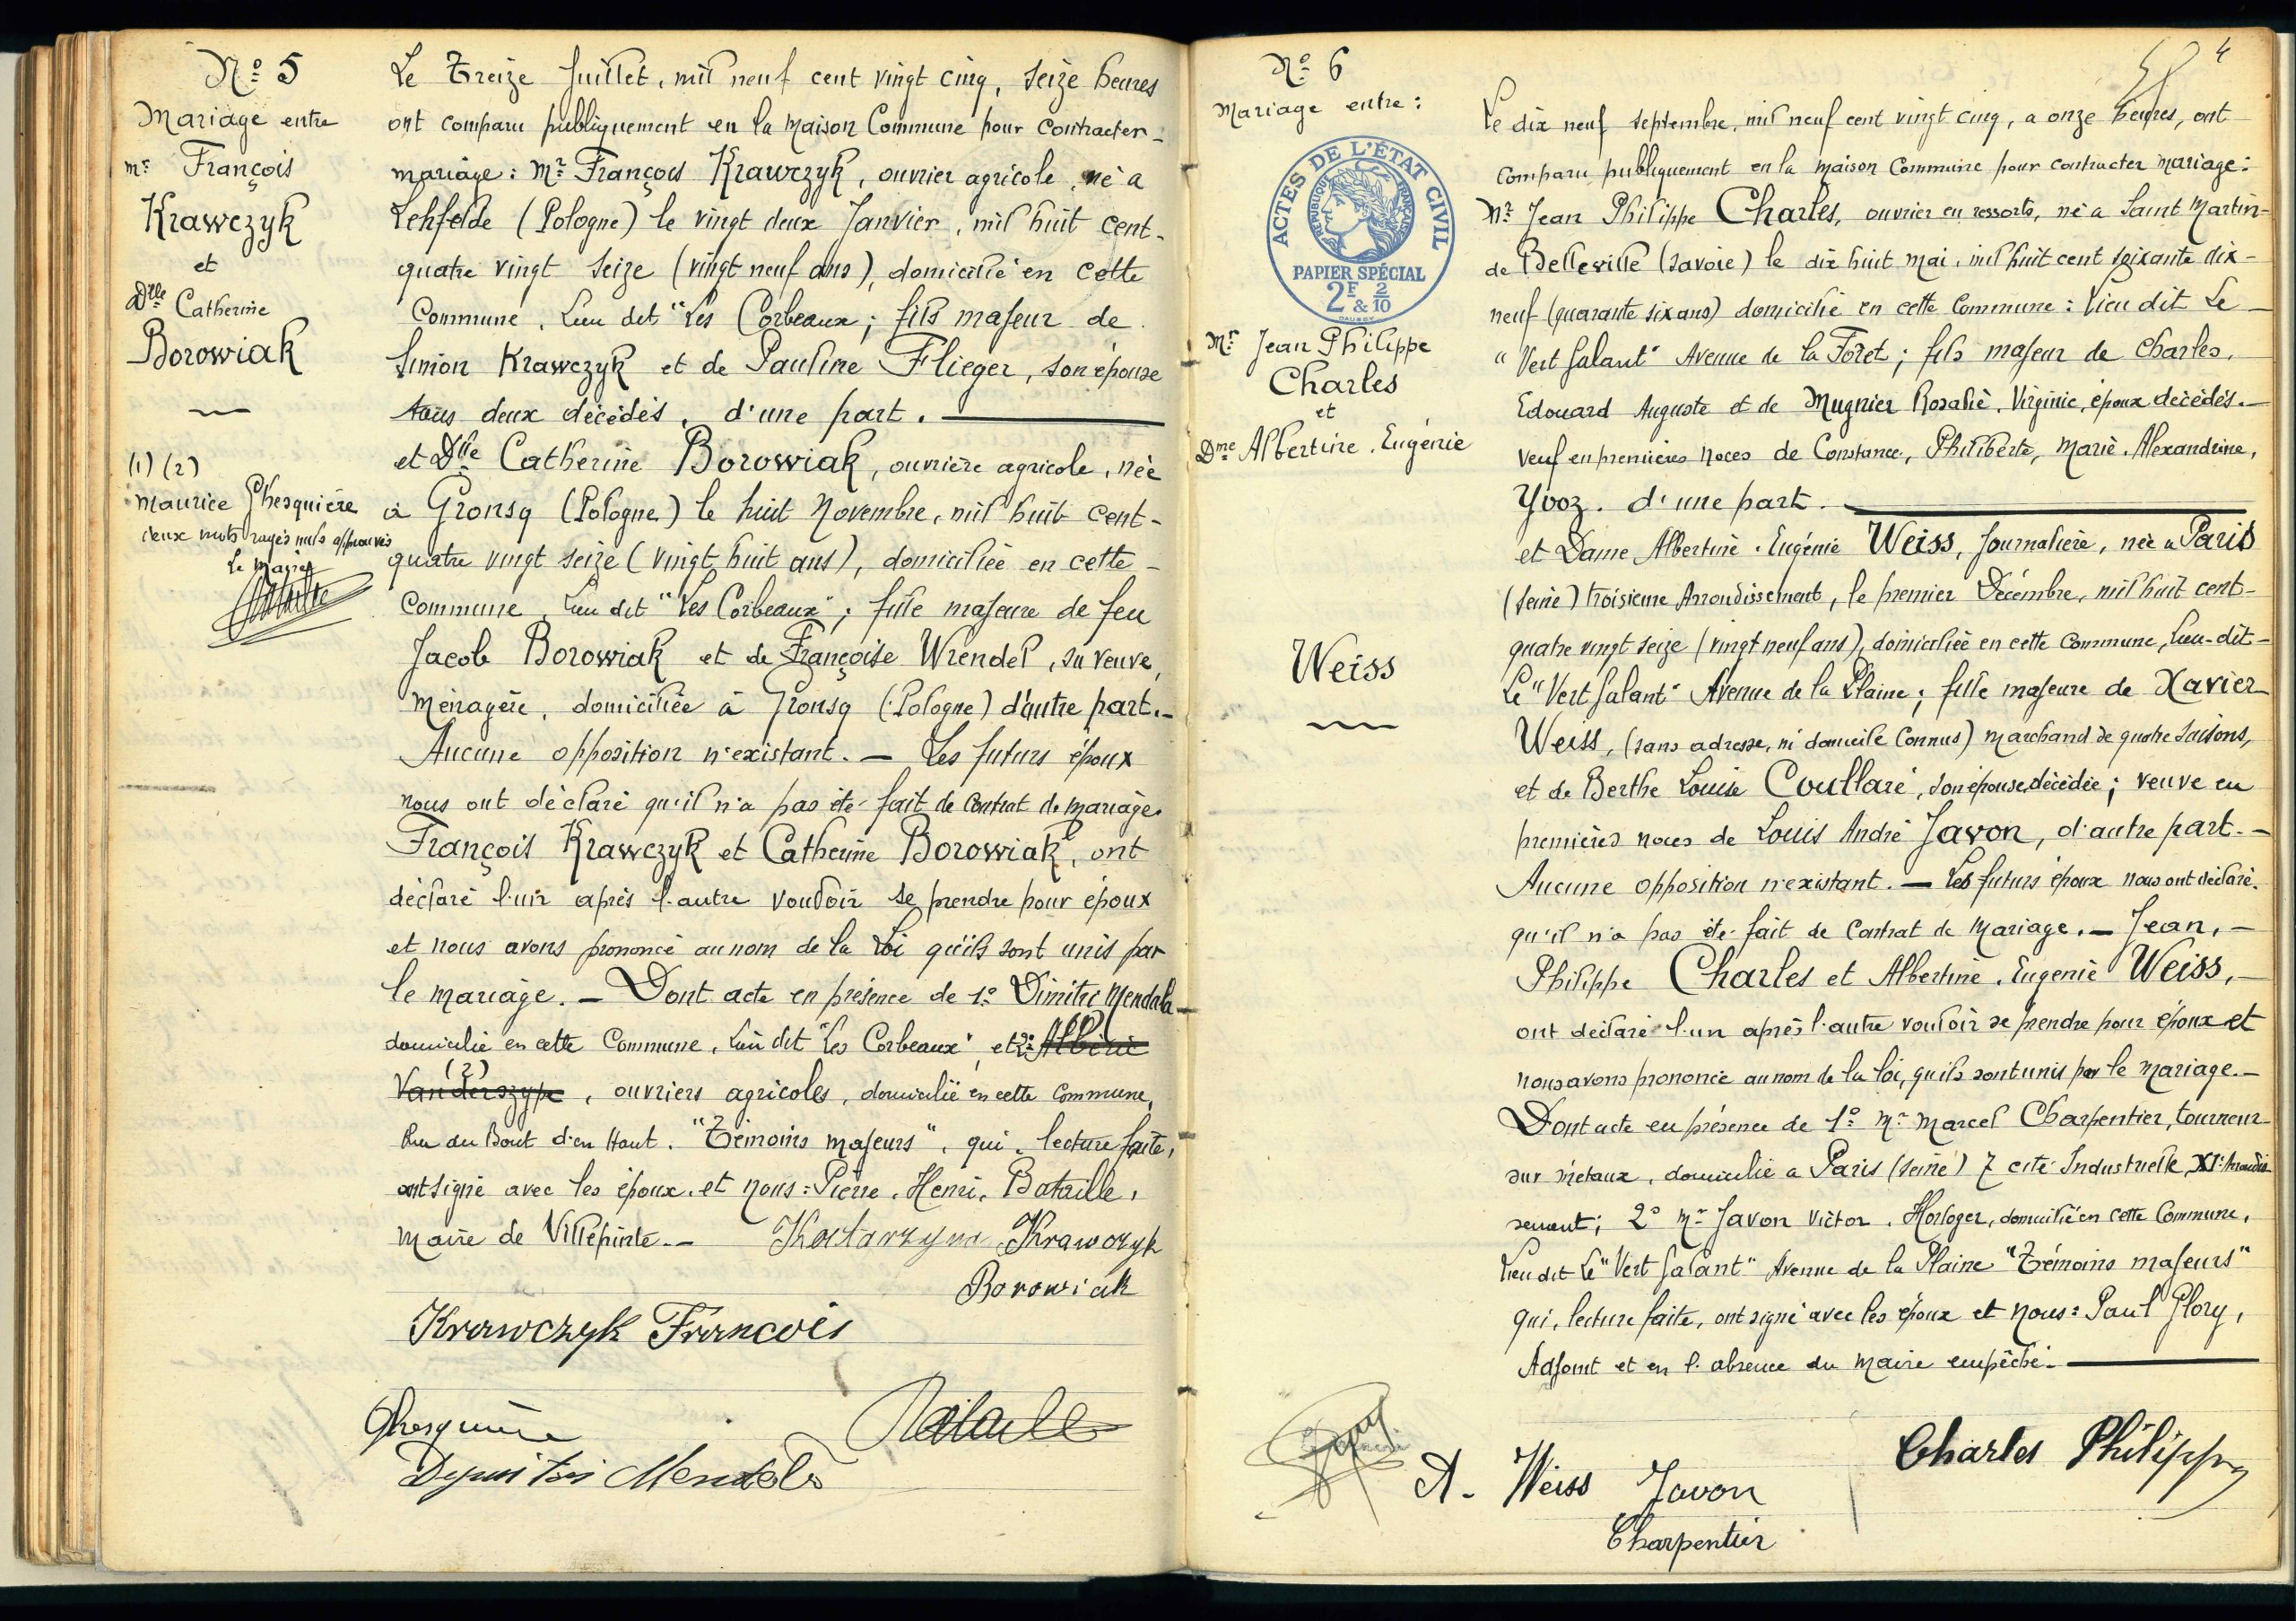 N° 5
Mariage entre
Mr François
Krawczyk
et
Dlle Catherine
Borowiak
(1) (2)
Maurice Ghesquière
deux mots rayés nuls approuvés
Le Maire
Le Treize Juillet, mil neuf cent vingt cinq, seize heures
ont comparu publiquement en la Maison Commune pour contracter
mariage : Mr François Krawczyk, ouvrier agricole, né à
Lehfelde (Pologne) le vingt deux Janvier, mil huit cent-
quatre vingt seize (vingt neuf ans), domicilié en cette
Commune, Lieu dit "Les Corbeaux ; fils majeur de
Simon Krawczyk et de Pauline Flieger, son épouse
tous deux décédés, d'une part. —
et Dlle Catherine Borowiak, ouvrière agricole, née
à Gronsq (Pologne) le huit Novembre, mil huit cent-
quatre vingt seize (vingt huit ans), domiciliée en cette -
Commune, Lieu dit "Les Corbeaux" ; fille majeure de feu
Jacob Borowiak et de Françoise Wrendel, sa veuve,
Ménagère, domiciliée à Gronsq (Pologne) d'autre part.-
Aucune opposition n'existant. — Les futurs époux
nous ont déclaré qu'il n'a pas été fait de Contrat de mariage.
François Krawczyk et Catherine Borowiak, ont
déclaré l'un après l'autre vouloir se prendre pour époux
et nous avons prononcé au nom de la Loi qu'ils sont unis par
le mariage. — Dont acte en présence de 1° Dimitri Mendala
domicilié en cette Commune, Lieu dit "Les Corbeaux" et 2° (1) Albéric
(2) Vanderszype, ouvriers agricoles, domicilié en cette commune,
Rue du Bout d'en Haut. "Témoins majeurs", qui, lecture faite,
ont signé avec les époux et nous : Pierre, Henri, Bataille,
Maire de Villepinte.— Katarzyna Krawczyk
Borowiak
Krawczyk Francois
Ghesquière Bataille
Dymitri Mendala
4
N° 6
Mariage entre :
ACTES DE L'ÉTAT CIVIL
RÉPUBLIQUE FRANÇAISE
PAPIER SPÉCIAL
2F & 2/10
Mr Jean Philippe
Charles
et
Dme Albertine, Eugénie
Weiss
Le dix neuf septembre, mil neuf cent vingt cinq, à onze heures, ont
comparu publiquement en la Maison Commune pour contracter mariage :
Mr Jean Philippe Charles, ouvrier en ressorts, né à Saint Martin-
de Belleville (Savoie) le dix huit mai, mil huit cent soixante dix-
neuf (quarante six ans) domicilié en cette Commune : Lieu dit Le -
"Vert Galant" Avenue de la Foret ; fils majeur de Charles,
Edouard Auguste et de Mugnier Rosalie, Virginie, époux décédés.—
Veuf en premières Noces de Constance, Philiberte, Marie, Alexandrine,
Yvoz. d'une part. —
et Dame Albertine, Eugénie Weiss, Journalière, née à Paris
(Seine) troisième Arrondissement, le premier Décembre, mil huit cent-
quatre vingt seize (vingt neuf ans), domiciliée en cette Commune, Lieu-dit-
Le "Vert Galant" Avenue de la Plaine ; fille majeure de Xavier
Weiss, (sans adresse, ni domicile connus) Marchand de quatre Saisons,
et de Berthe Louise Coullaré, son épouse, décédée ; veuve en
premières noces de Louis André Javon, d'autre part.—
Aucune opposition n'existant. — Les futurs époux nous ont déclaré.
qu'il n'a pas été fait de Contrat de Mariage. — Jean, —
Philippe Charles et Albertine, Eugenie Weiss, —
ont déclaré l'un après l'autre vouloir se prendre pour époux et
nous avons prononcé au nom de la loi, qu'ils sont unis par le Mariage.—
Dont acte en présence de 1° Mr Marcel Charpentier, tourneur
sur métaux, domicilié à Paris (Seine) 7 cité Industrielle, XIe Arrondis-
sement ; 2° Mr Javon Victor, Horloger, domicilié en cette Commune,
Lieu dit Le "Vert Galant" Avenue de la Plaine "Témoins majeurs"
qui, lecture faite, ont signé avec les époux et nous : Paul Glory,
Adjoint et en l'absence du Maire empêché.—
Charles Philippe
A. Weiss Javon
Charpentier